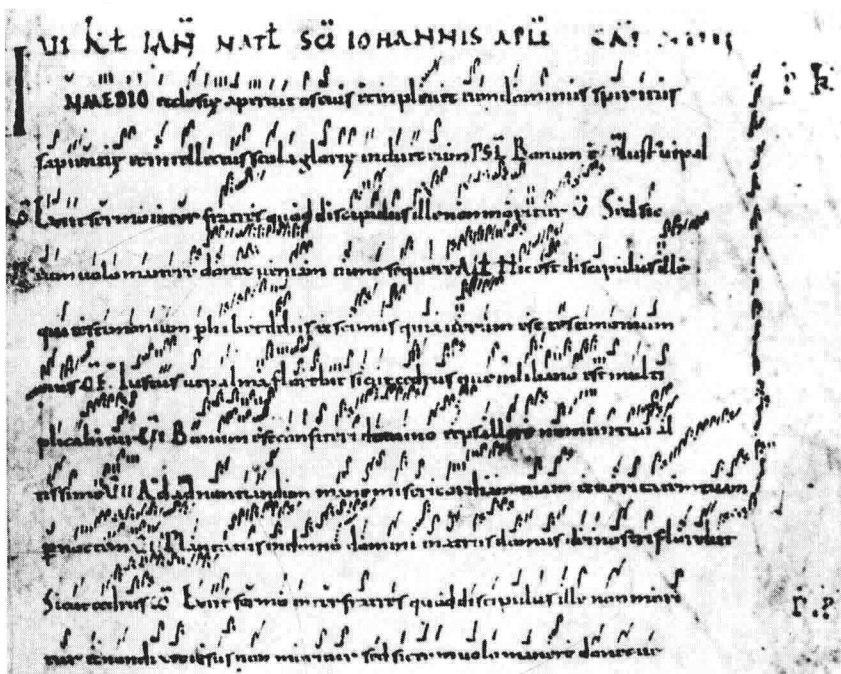 VI KL IAN NATL SCI IOHANNIS APLI
IN MEDIO ecclesię aperuit os eius et inpleuit eum dominus spiritus
sapientię et intellectus stola glorię induit eum PSL Bonum e
Exiit sermo inter fratres quod discipulus ille non moritur V Sed sic
eum uolo manere donec ueniam tu me sequere ALL Hic est discipulus ille
qui testimonium phibet de his et scimus quia uerum est testimonium
eius OF Iustus ut palma florebit sicut cedrus que in libano est multi
plicabitur Bonum est confiteri domino et psallere nomini tuo al
tissime VII Ad adnuntiandum mane misericordiam tuam et ueritatem tuam
p noctem Plantatus in domo domini in atriis domus dei nostri florebit
Sicut cedrus CO Exiit sermo inter fratres quod discipulus ille non mori
tur et non dixit iesus non moritur sed sic eum uolo manere donec ue